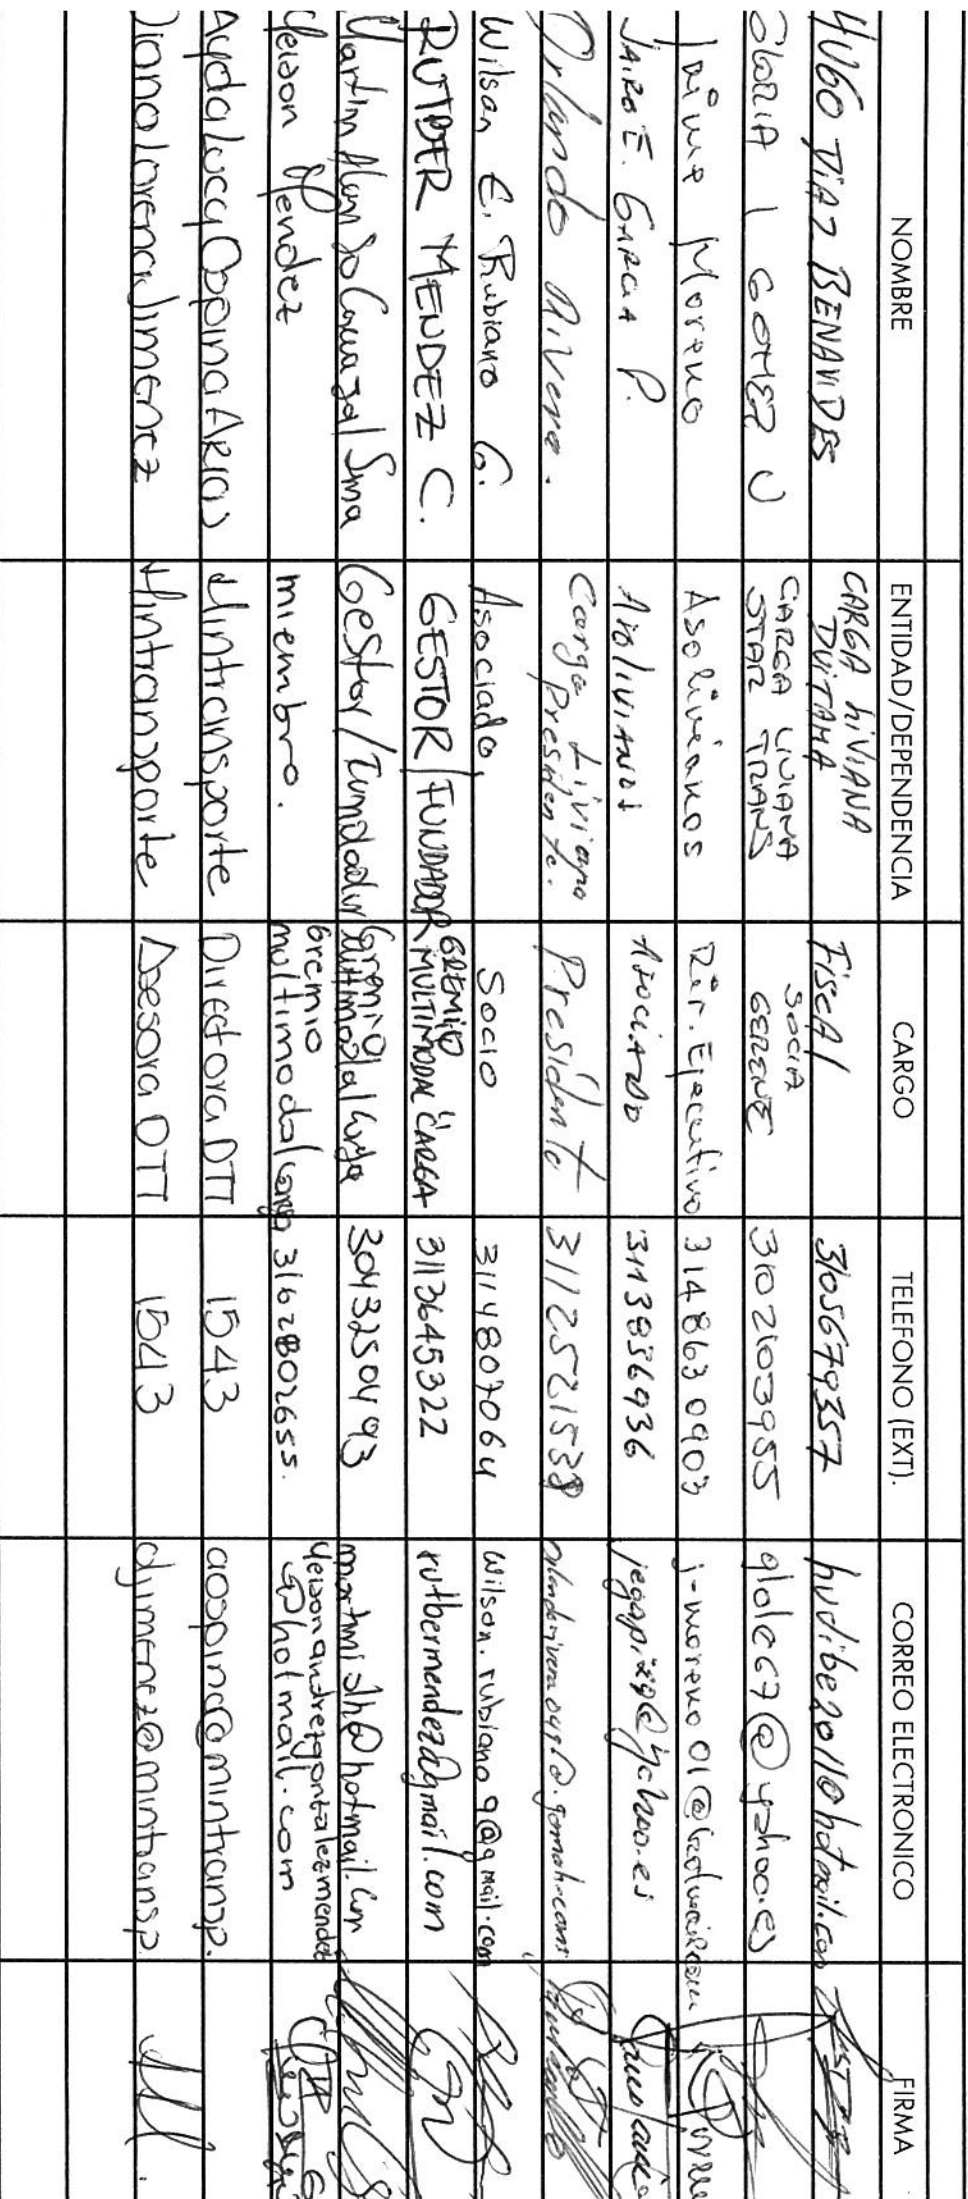 NOMBRE ENTIDAD/DEPENDENCIA CARGO TELEFONO (EXT). CORREO ELECTRONICO FIRMA
HUGO DIAZ BENAVIDES CARGA LIVIANA DUITAMA Fiscal 3105679357 hudibe2011@hotmail.com
GLORIA I GOMEZ U CARGA LIVIANA STAR TRANS SOCIA GERENTE 3102103955 glole67@yahoo.es
Jaime Moreno Asolivianos Dir. Ejecutivo 314 863 0903 j-moreno01@
JAIRO E. GARCIA P. Asolivianos ASOCIADO 3113836936
Orlando Rivera. Carga Liviana Presidente. Presidente 3112521538
Wilson E. Rubiano G. Asociado, Socio 3114807064 wilson.rubiano9@gmail.com
RUTBER MENDEZ C. GESTOR/FUNDADOR GREMIO MULTIMODAL CARGA 3113645322 rutbermendez@gmail.com
Gestor/Fundador Gremio Multimodal Carga 3043250493
Yeison Mendez miembro. Gremio multimodal carga 3162802655. yeisonandrezgonzalezmendez@hotmail.com
Ayda Lucy Ospina Arias Mintransporte Directora DTT 1543 aospina@mintransp.
Diana Lorena Jimenez Mintransporte Asesora DTT 1543 djimenez@mintransp.